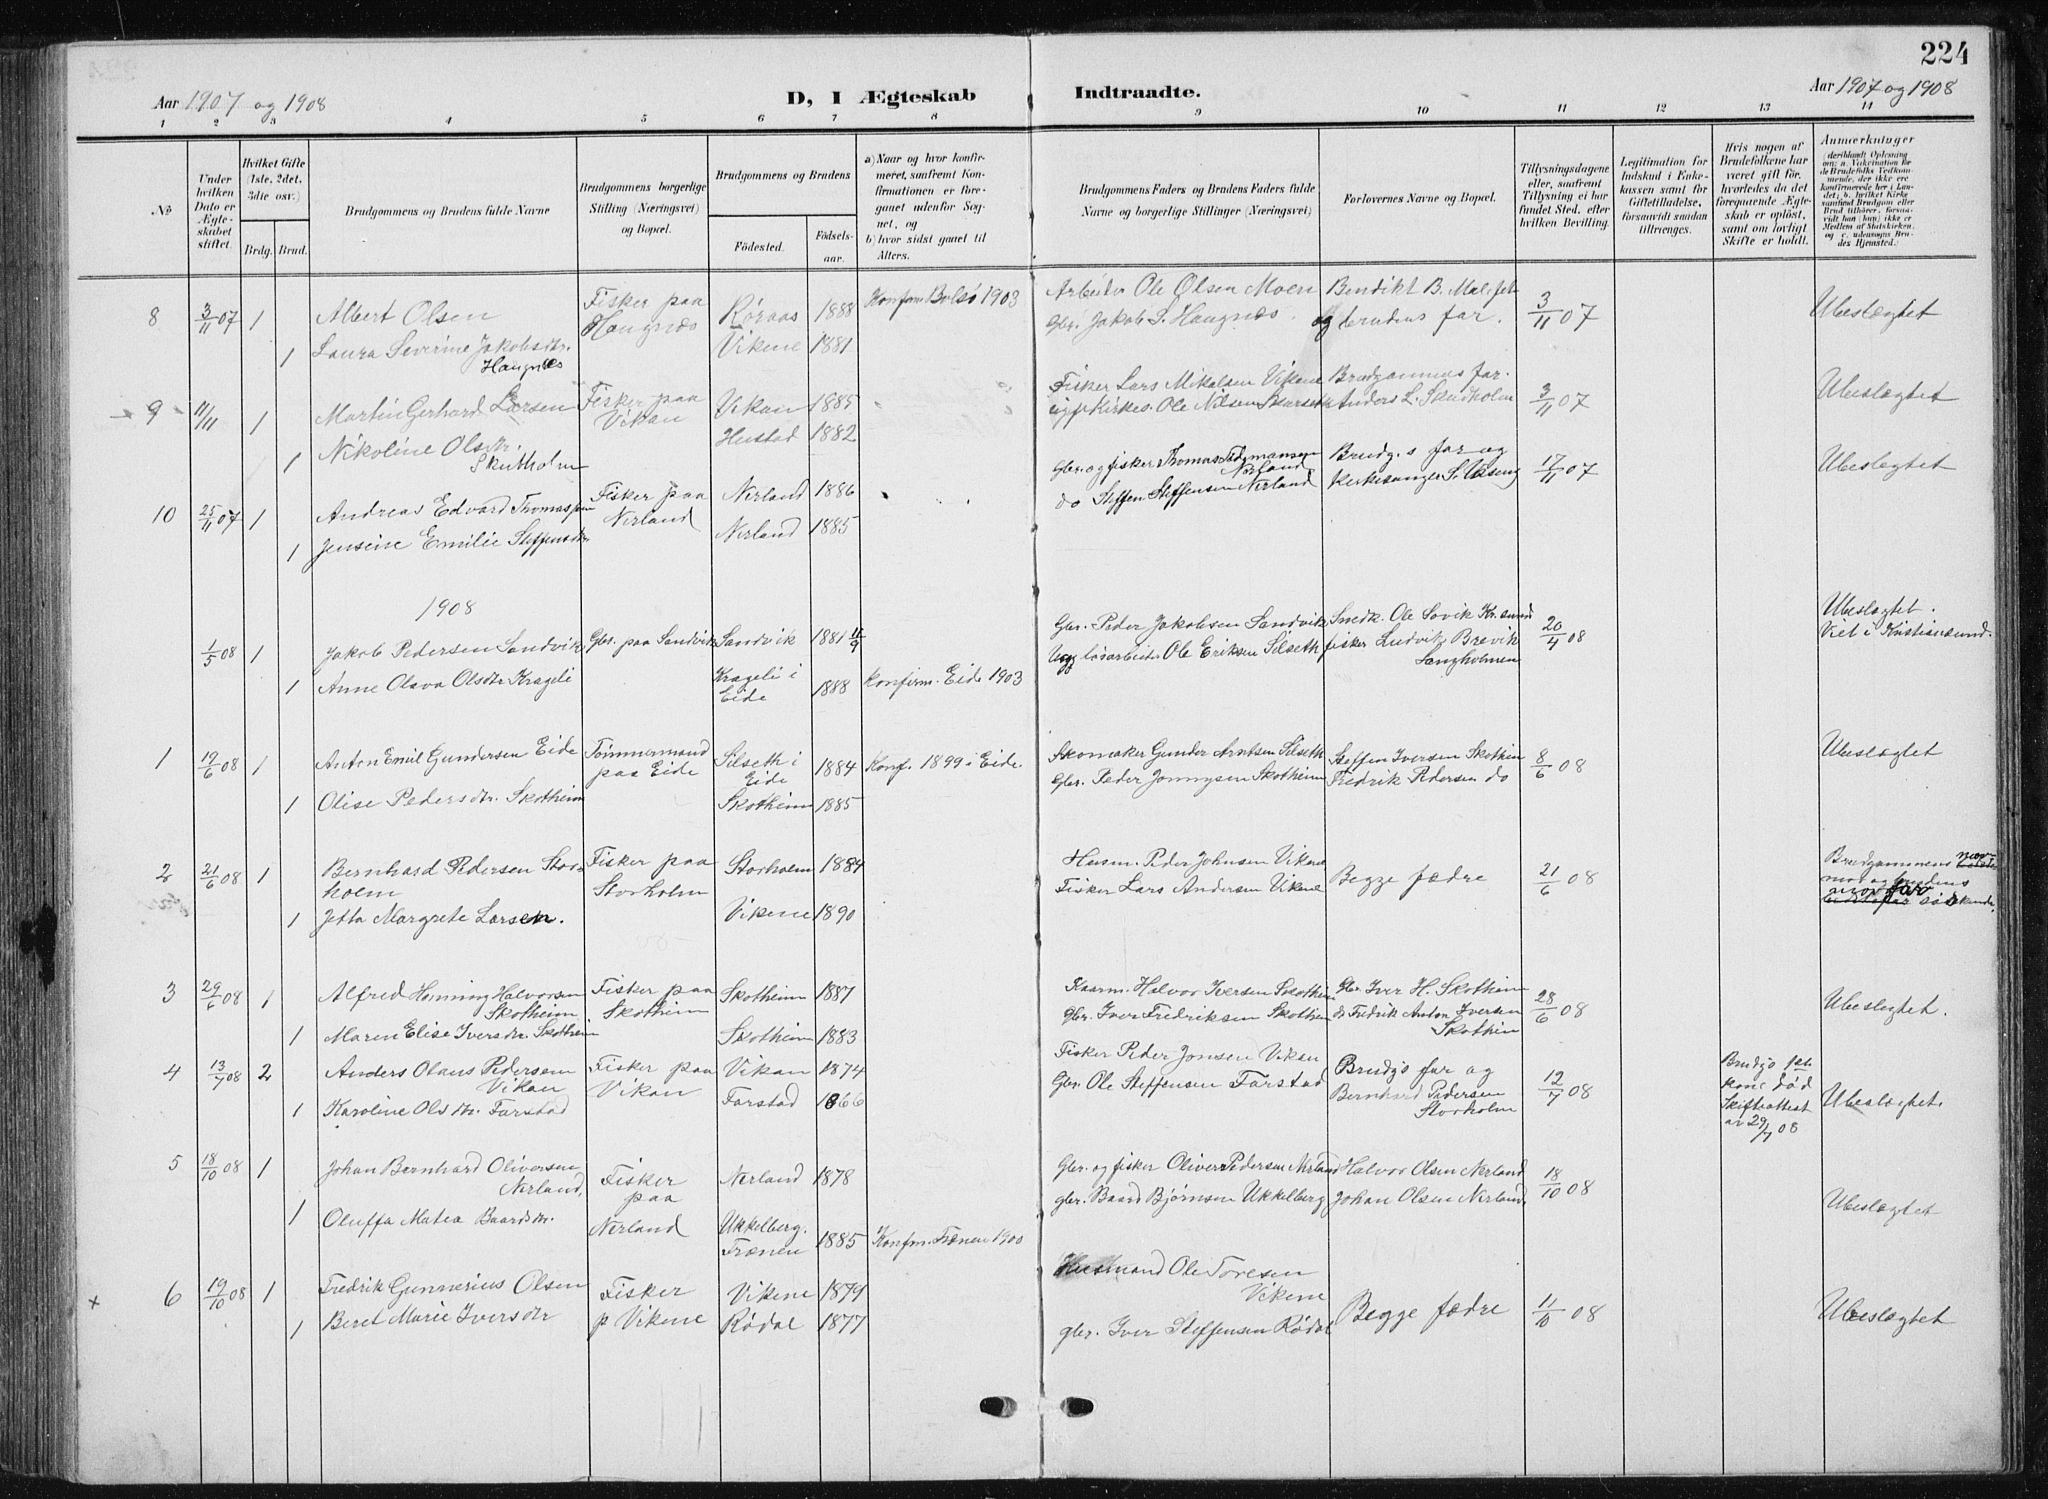 224
Aar 1907 og 1908
D, I Ægteskab Indtraadte.
Aar 1907 og 1908
1 2 3 4 5 6 7 8 9 10 11 12 13 14
No
Under hvilken Dato er Ægteskabet stiftet.
Hvilket Gifte (1ste, 2det, 3die osv.)
Brdg. Brud.
Brudgommens og Brudens fulde Navne
Brudgommens borgerlige Stilling (Næringsvei) og Bopæl.
Brudgommens og Brudens
Fødested. Fødselsaar.
a) Naar og hvor konfirmeret, saafremt Konfirmationen er foregaaet udenfor Sognet, og
b) hvor sidst gaaet til Alters.
Brudgommens Faders og Brudens Faders fulde Navne og borgerlige Stillinger (Næringsvei)
Forlovernes Navne og Bopæl.
Tillysningsdagene eller, saafremt Tillysning ei har fundet Sted, efter hvilken Bevilling.
Legitimation for Indskud i Enkekassen samt for Giftetilladelse, forsaavidt saadan tiltrænges.
Hvis nogen af Brudefolkene har været gift før, hvorledes da det foregaaende Ægteskab er opløst, samt om lovligt Skifte er holdt.
Anmerkninger
(deriblandt Oplysning om: a. Vakcination for de Brudefolks Vedkommende, der ikke ere konfirmerede her i Landet; b. hvilket Kirkesamfund Brudgom eller Brud tilhører, forsaavidt han (hun) ikke er Medlem af Statskirken, og c. udensogns Brudes Hjemsted.)
8 3/11 07 1 Albert Olsen Fisker paa Haugnæs Røraas 1888 Konfirm. Bolsø 1903 Arbeider Ole Olsen Moen Bendikt B. Male fet 3/11 07 Ubeslægtet
1 Laura Severine Jakobsdtr. Haugnæs Vikene 1881 Gbr. Jakob P. Haugnæs. og brudens far.
9 11/11 1 Martin Gerhard Larsen Fisker paa Vikan Vikan 1885 Fisker Lars Mikalsen Vikene Brudgommens far. 3/11 07 Ubeslægtet
1 Nikoline Olsdtr. Skutholm Hustad 1882 Ole Nilsen Anders L. Skudholm
10 25/11 07 1 Andreas Edvard Thomassen Fisker paa Nerland Nerland 1886 Gbr. og fisker Thomas Nerland Brudg.s far og 17/11 07 Ubeslægtet
1 Jensine Emilie Steffensdtr. Nerland 1885 do Steffen Steffensen Nerland Kirkesanger
1908
1/5 08 1 Jakob Pedersen Sandvik Gbr. paa Sandvik Sandvik 1881 Gbr. Peder Jakobsen Sandvik Smedk. Ole Sovik Kr.sund 20/4 08 Ubeslægtet.
Viet i Kristiansund.
1 Anne Olava Olsdtr Krageli Krageli i Eide 1888 Konfirm. Eide 1903 løsarbeider Ole Eriksen Silseth fisker Ludvik Brevik Langholmen
1 19/6 08 1 Anton Emil Gundersen Eide Tømmermand paa Eide Silseth i Eide 1884 Konf. 1899 i Eide. Skomaker Gunder Arntsen Silseth Steffen Iversen Skotheim 8/6 08 Ubeslægtet
1 Olise Pedersdtr. Skotheim Skotheim 1885 Gbr. Peder Skotheim Fredrik Pedersen do
2 21/6 08 1 Bernhard Pedersen Storholm Fisker paa Storholm Storholm 1884 Husm. Peder Johnsen Vikene Begge fædre 21/6 08 Brudgommens
mor og brudens
far søskende.
1 Jetta Margrete Larsen. Vikene 1890 Fisker Lars Andersen Vikene
3 29/6 08 1 Alfred Henning Halvorsen Skotheim Fisker paa Skotheim Skotheim 1887 Kaarm. Halvor Iversen Skotheim gbr. Iver H. Skotheim 28/6 08 Ubeslægtet.
1 Maren Elise Iversdtr. Skotheim Skotheim 1883 gbr. Iver Fredriksen Skotheim do Fredrik Anton Iversen Skotheim
4 13/7 08 2 Anders Olaus Pedersen Vikan Fisker paa Vikan Vikan 1874 Fisker Peder Jonsen Vikan Brudgs far og 12/7 08 Brudgs 1ste kone død Skifteattest av 29/7 08 Ubeslægtet.
1 Karoline Olsdtr. Farstad Farstad 1866 Gbr. Ole Steffensen Farstad Bernhard Pedersen Storholm
5 18/10 08 1 Johan Bernhard Oliversen Nerland, Fisker paa Nerland Nerland 1878 Gbr. og fisker Oliver Pedersen Nerland Halvor Olsen Nerland 18/10 08 Ubeslægtet
1 Oluffa Matea Baardsdtr. Ukkelberg. Frænen 1885 Konfrm. Frænen 1900 gbr. Baard Bjørnsen Ukkelberg Johan Olsen Nerland
6 19/10 08 1 Fredrik Gunnerius Olsen Fisker p Vikene Vikene 1879 Husmand Ole Toresen Vikene Begge fædre 11/10 08 Ubeslægtet
1 Beret Marie Iversdtr Rødal 1877 gbr. Iver Steffensen Rødal